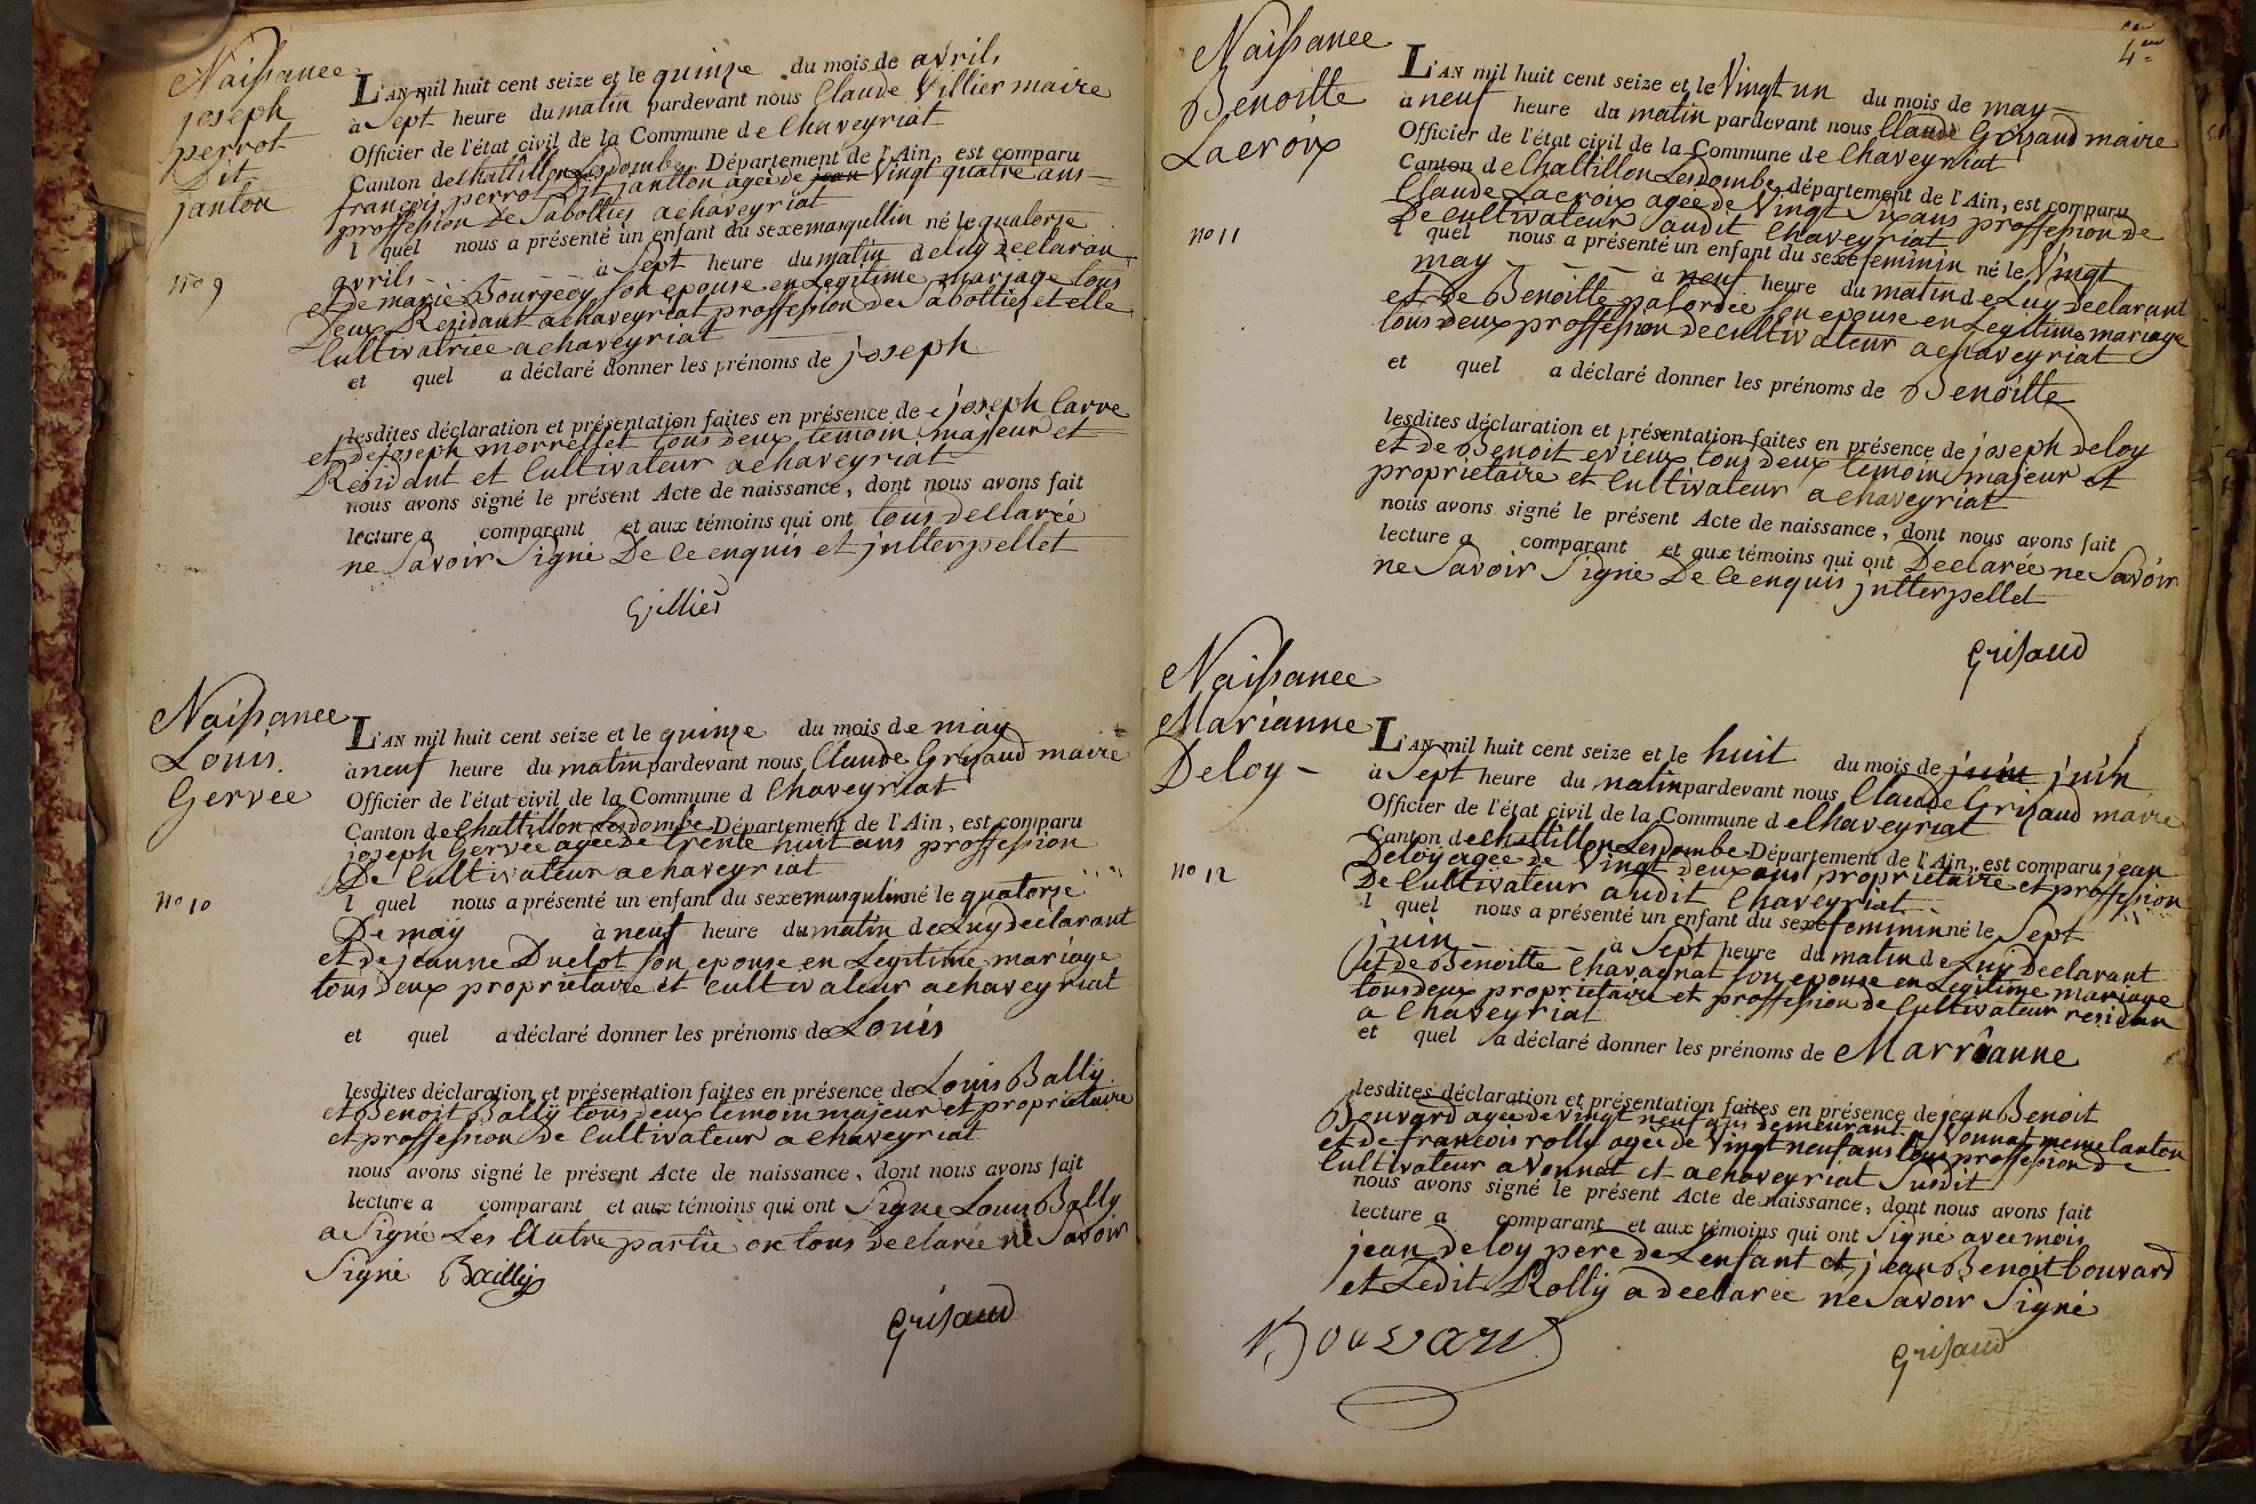 Naissance
joseph
perrot
Dit
janton
no 9
L'AN mil huit cent seize et le quinze du mois de avrils
à Sept heure du matin pardevant nous Claude Villier maire
Officier de l'état civil de la Commune de Chaveyriat
Canton de Chattillon Lesdombe Département de l'Ain, est comparu
francois perrot Dit jantton agée de jean Vingt quatre ans
proffession de Sabottiés a chaveyriat
l quel nous a présenté un enfant du sexe masqullin né le quatorze
avrils à Sept heure du matin de luy Declaran
et de marie Bourgeoy son epouse en Legitime mariage tous
Deux Rezidant a chaveyriat proffession de Sabottiés et elle
Cultivatrice a chaveyriat
et quel a déclaré donner les prénoms de joseph
lesdites déclaration et présentation faites en présence de joseph Carre
et de joseph morrellet tous deux temoin majeur et
Residant et Cultivateur a chaveyriat
nous avons signé le présent Acte de naissance, dont nous avons fait
lecture a comparant et aux témoins qui ont tous Dellarée
ne Savoir Signé De Ce enquis et jntterpellet
Gillier
Naissance
Louis
Gervee
no 10
L'AN mil huit cent seize et le quinze du mois de may
à neuf heure du matin pardevant nous Claude Grizaud maire
Officier de l'état civil de la Commune d Chaveyriat
Canton de Chattillon Lesdombe Département de l'Ain, est comparu
joseph Gervée agée de trente huit ans proffession
De Cultivateur a chaveyriat
l quel nous a présenté un enfant du sexe musqulin né le quatorze
De may à neuf heure du matin de Luy declarant
et de jeanne Duclot son epouse en Legitime mariage
tous deux proprietaire et Cultivateur a chaveyriat
et quel a déclaré donner les prénoms de Louis
lesdites déclaration et présentation faites en présence de Louis Bally
et Benoit Bally tous deux temoin majeur et proprietaire
et proffession De Cultivateur a Chaveyriat
nous avons signé le présent Acte de naissance, dont nous avons fait
lecture a comparant et aux témoins qui ont Signe Louis Bally
a Signé Les Autre partie on tous declarée ne Savoir
Signé Bailly
Grisaud
4me
Naissance
Benoitte
Lacroix
no 11
L'AN mil huit cent seize et le Vingt un du mois de may
à neuf heure du matin pardevant nous Claude Grisaud maire
Officier de l'état civil de la Commune de Chaveyriat
Canton de Chattillon Lesdombe département de l'Ain, est comparu
Claude Lacroix agée de Vingt Six ans proffession de
De Cultivateur audit Chaveyriat
l quel nous a présenté un enfant du sexe feminin né le Vingt
may à neuf heure du matin de Luy Declarant
et de Benoitte palordié son epouse en Legitime mariage
tous deux proffession de Cultivateur a chaveyriat
et quel a déclaré donner les prénoms de Benoitte
lesdites déclaration et présentation faites en présence de joseph Deloy
et de Benoit evieux tous deux temoin majeur et
proprietaire et Cultivateur a chaveyriat
nous avons signé le présent Acte de naissance, dont nous avons fait
lecture a comparant et aux témoins qui ont Declarée ne Savoir
ne Savoir Signé De Ce enquis jntterpellet
Grisaud
Naissance
Marianne
Deloy
no 12
L'AN mil huit cent seize et le huit du mois de juin juin
à Sept heure du matin pardevant nous Claude Grizaud maire
Officier de l'état civil de la Commune d eChaveyriat
Canton de Chattillon Lesdombe Département de l'Ain, est comparu jean
Deloy agee de Vingt deux ans proprietaire et proffession
De Cultivateur audit Chaveyriat
l quel nous a présenté un enfant du sexe feminin né le Sept
juin à Sept heure du matin de Luy Declarant
et de Benoitte Chavagnat son epouse en Legitime mariage
tous deux proprietaire et proffession de Cultivateur residan
a Chaveyriat
et quel a déclaré donner les prénoms de Marriânne
lesdites déclaration et présentation faites en présence de jean Benoit
Bouvard agée de vingt neuf ans demeurant a Vonnat meme Canton
et de francois rolly agée de Vingt neuf ans tous proffession de
Cultivateur a Vonnat et a chaveyriat Susdit
nous avons signé le présent Acte de naissance, dont nous avons fait
lecture a comparant et aux témoins qui ont Signé avec moi
jean Deloy pere de Lenfant et jean Benoit bouvard
et Ledit Rolly a declarée ne Savoir Signé
Bouvard
Grisaud